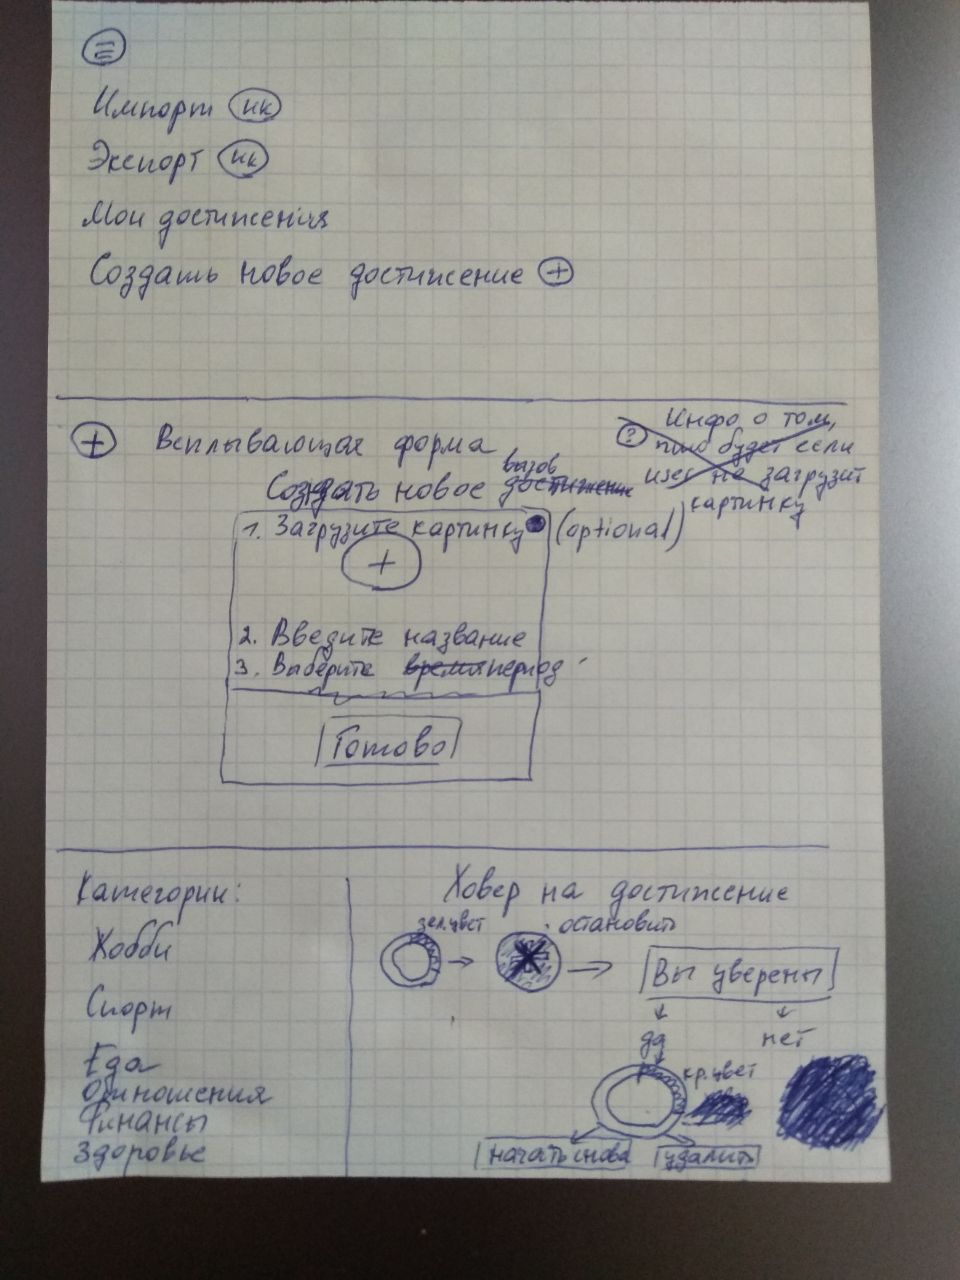 Импорт ик
Экспорт ик
Мои достижения
Создать новое достижение +
+ Всплывающая форма
вызов
Создать новое достижение
? Инфо о том,
что будет если
не загрузит
картинку
1. Загрузите картинку (optional)
+
2. Введите название
3. Выберите время период
Готово
Категории:
Хобби
Спорт
Еда
Отношения
Финансы
Здоровье
Ховер на достижение
зел.цвет
остановить
Вы уверены
да
нет
кр.цвет
начать снова
удалить